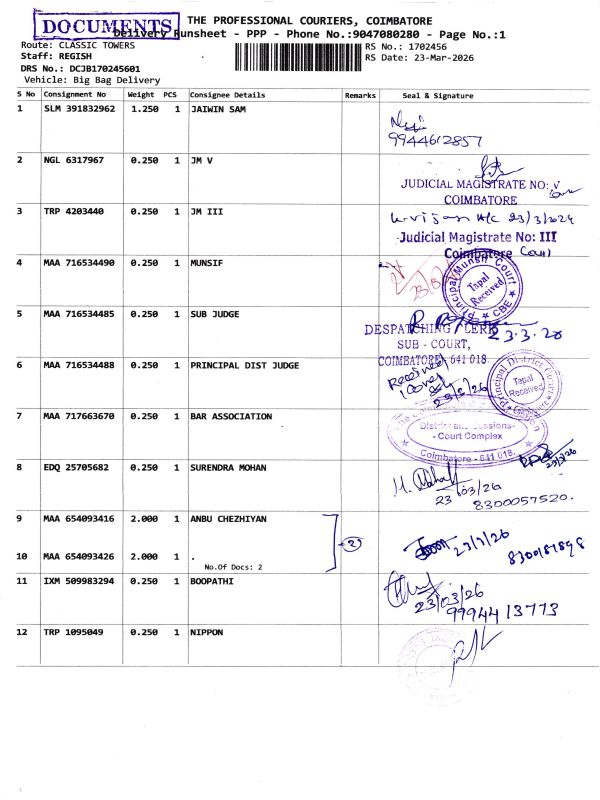 DOCUMENTS
THE PROFESSIONAL COURIERS, COIMBATORE
Delivery Runsheet - PPP - Phone No.:9047080280 - Page No.:1
Route: CLASSIC TOWERS
RS No.: 1702456
Staff: REGISH
RS Date: 23-Mar-2026
DRS No.: DCJB170245601
Vehicle: Big Bag Delivery
S No Consignment No Weight PCS Consignee Details Remarks Seal & Signature
1 SLM 391832962 1.250 1 JAIWIN SAM
9944612857
2 NGL 6317967 0.250 1 JM V
JUDICIAL MAGISTRATE NO: V
COIMBATORE
3 TRP 4203440 0.250 1 JM III
23/3/2024
Judicial Magistrate No: III
Coimbatore Court
4 MAA 716534490 0.250 1 MUNSIF
Principal Munsif Court
Tapal Received
CBE
5 MAA 716534485 0.250 1 SUB JUDGE
DESPATCHING CLERK
23.3.26
SUB - COURT,
COIMBATORE - 641 018
6 MAA 716534488 0.250 1 PRINCIPAL DIST JUDGE
Received
23/3/26
Principal District Court
Tapal Received
7 MAA 717663670 0.250 1 BAR ASSOCIATION
District and Sessions-
- Court Complex
Coimbatore - 641 018.
23/3/26
8 EDQ 25705682 0.250 1 SURENDRA MOHAN
23/03/26
8300057520.
9 MAA 654093416 2.000 1 ANBU CHEZHIYAN
2
23/3/26
10 MAA 654093426 2.000 1 .
No.Of Docs: 2
11 IXM 509983294 0.250 1 BOOPATHI
23/03/26
9994413773
12 TRP 1095049 0.250 1 NIPPON